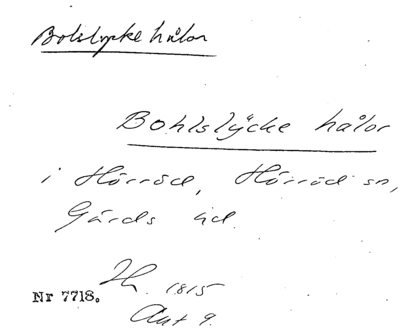 Bolslycke hålor
Bohlslÿcke hålor
i Hörröd, Hörröd sn,
Gärds hd.
Nr 7718. 1815
Akt 9.